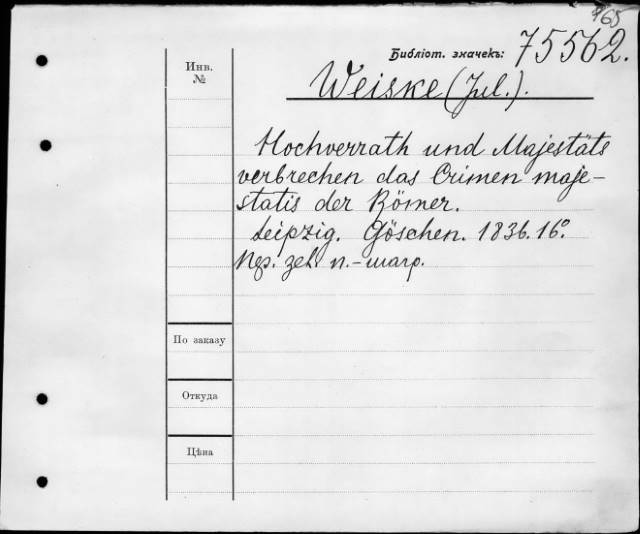 765
Библіот. значекъ: 75562.
Инв.
№
Weiske (Jul.).
Hochverrath und Majestäts
verbrechen das Crimen maje-
statis der Römer.
Leipzig. Göschen. 1836. 16°.
Пер. зел. п.-шагр.
По заказу
Откуда
Цѣна